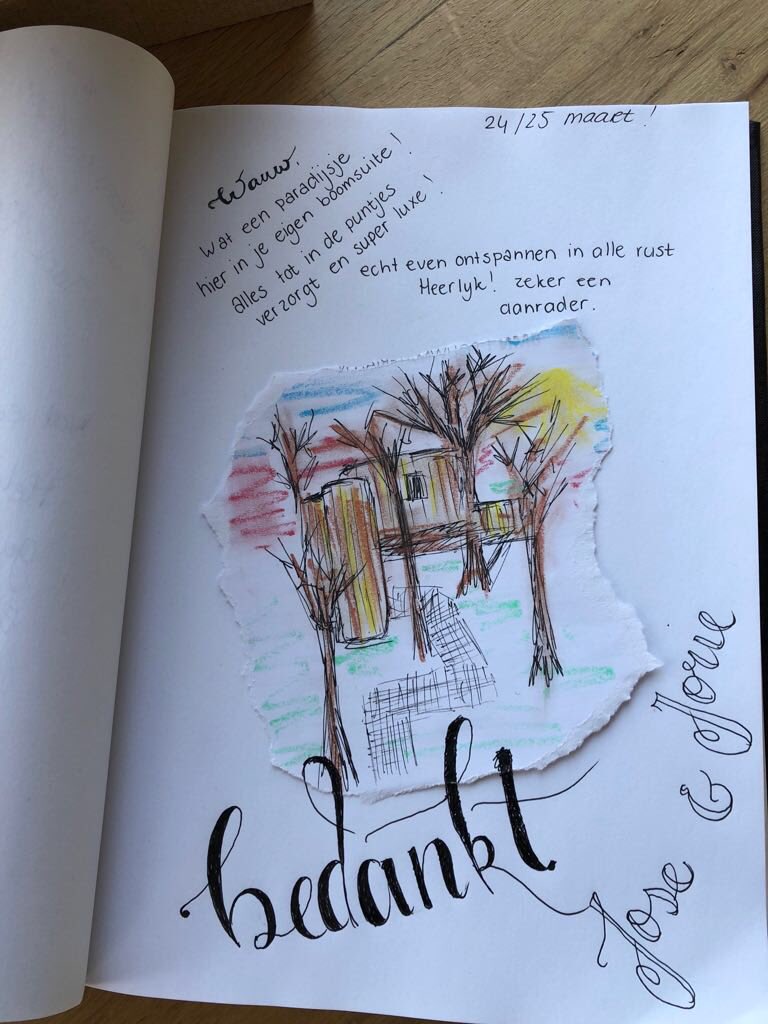 24/25 maart!
Wauw,
wat een paradijsje
hier in je eigen boomsuite!
alles tot in de puntjes
verzorgt en super luxe!
echt even ontspannen in alle rust
Heerlyk! zeker een
aanrader.
bedankt
Jose & Jorie